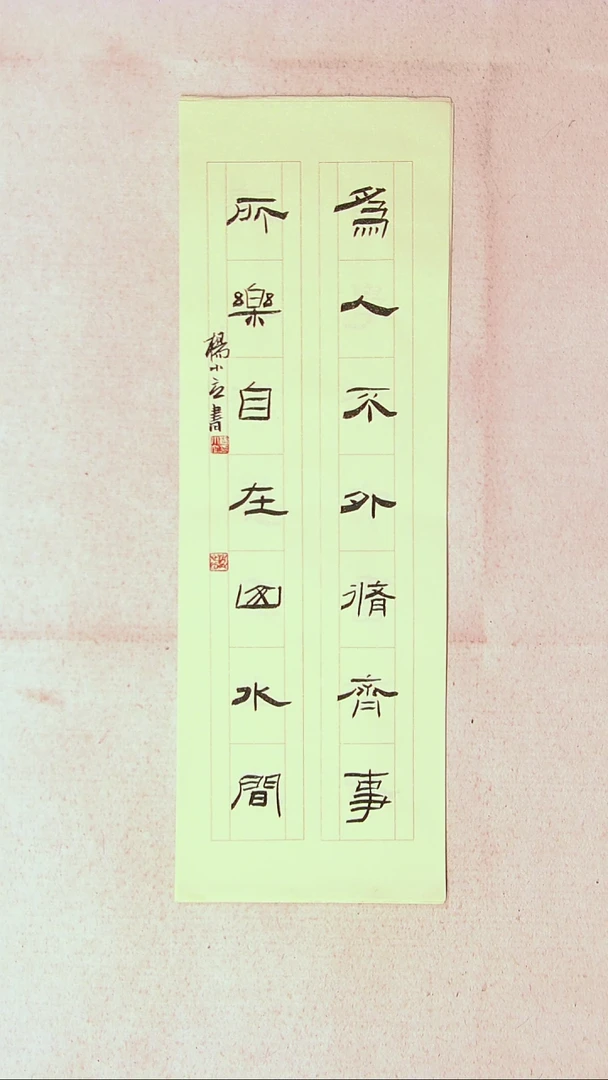 爲人不外脩齊事
所樂自在山水間
楊小書